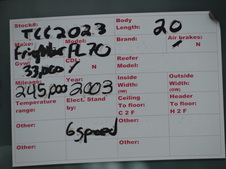 Stock#: TCC2023 Body Length: 20
Make: Freightliner Model: FL70 Brand: Air brakes: Y N
Gvw: 33,000 CDL: Y N Reefer Model:
Mileage: 245,000 Year: 2003 Inside Width: Outside Width:
Temperature range: Elect. Stand by: Ceiling To floor: H 2 F Header To floor: H 2 F
Other: Other: 6 speed Other: Other:
Other: